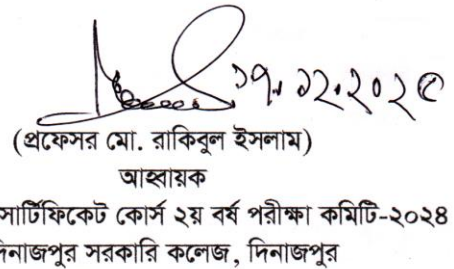 ১৭.১২.২০২৫
(প্রফেসর মো. রাকিবুল ইসলাম)
আহ্বায়ক
সার্টিফিকেট কোর্স ২য় বর্ষ পরীক্ষা কমিটি-২০২৪
দিনাজপুর সরকারি কলেজ, দিনাজপুর